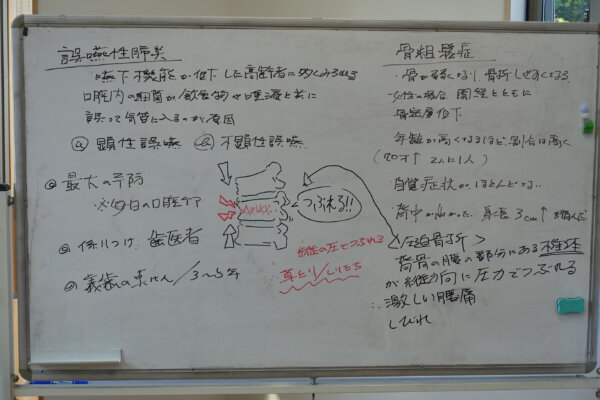 誤嚥性肺炎
・嚥下機能が低下した高齢者に多くみられる
口腔内の細菌が飲食物や唾液と共に
誤って気管に入るのが原因
ⓐ 顕性誤嚥 ⓑ 不顕性誤嚥
最大の予防
※毎日の口腔ケア
かかりつけ 歯医者
義歯の 3〜5年
つぶれる!!
縦の圧でつぶれる
∴草とり/しりもち
骨粗鬆症
・骨が弱くなり、骨折しやすくなる
・女性の場合 閉経とともに
骨密度低下
年齢が高くなるほど、割合は高く
(70才↑ 2人に1人)
・自覚症状がほとんどない
・背中が曲がった 身長3cm↑縮んだ
<圧迫骨折>
背骨の腰の部分にある椎体
が縦方向に圧力でつぶれる
∴激しい腰痛
しびれ